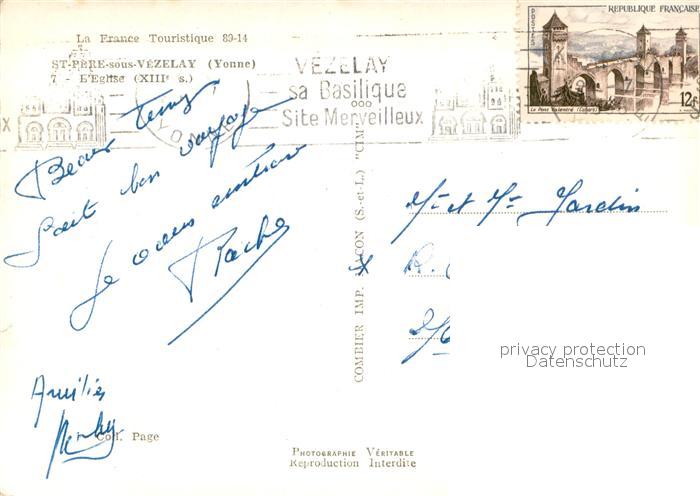 La France Touristique 89-14
ST-PÈRE-sous-VÉZELAY (Yonne)
7 - L'Eglise (XIIIe s.)
VÉZELAY
sa Basilique
Site Merveilleux
POSTES
REPUBLIQUE FRANÇAISE
Le Pont Valentré (Cahors)
12F
Beau temps
Fait bon voyage
Je vous
Amitiés
Coll. Page
COMBIER IMP. MACON (S.-et-L.) "CIM"
Mr et Me Jardin
R.
privacy protection
Datenschutz
PHOTOGRAPHIE VÉRITABLE
Reproduction Interdite